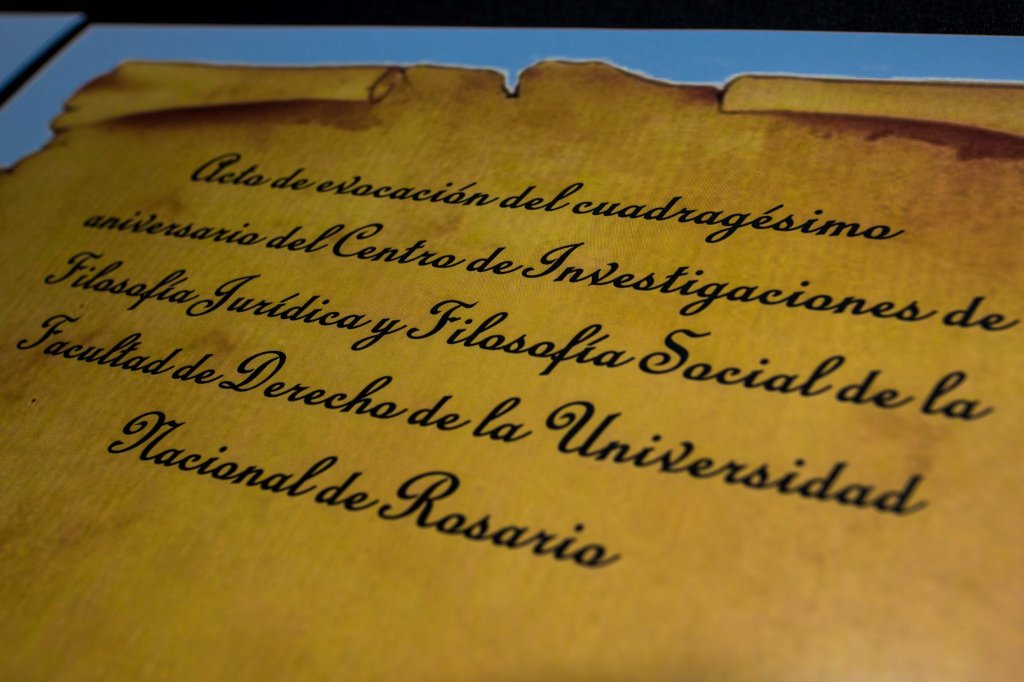 Acto de evocación del cuadragésimo
aniversario del Centro de Investigaciones de
Filosofía Jurídica y Filosofía Social de la
Facultad de Derecho de la Universidad
Nacional de Rosario